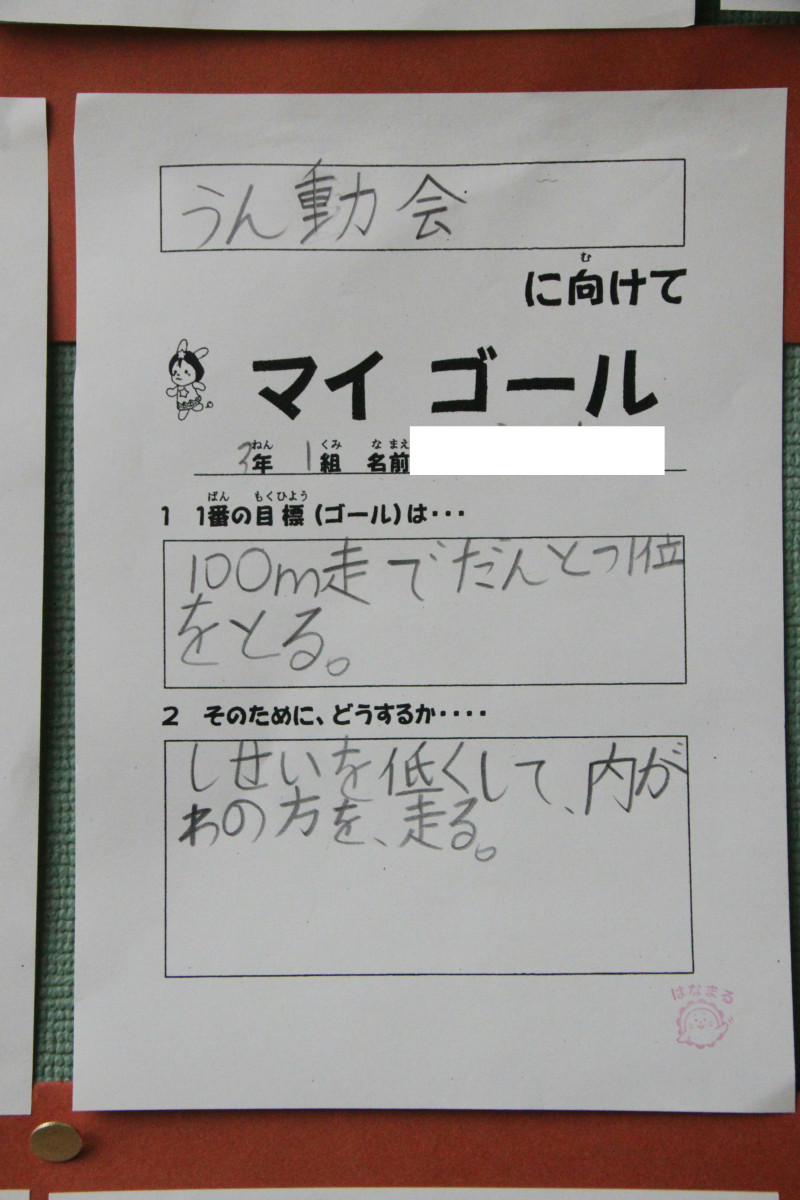 うん動会
に向けて
む
マイ ゴール
3年 1組 名前
ねん くみ なまえ
1 1番の目標(ゴール)は・・・
ばん もくひょう
100m走でだんとつ1位
をとる。
2 そのために、どうするか・・・・
しせいを低くして、内が
わの方を、走る。
はなまる